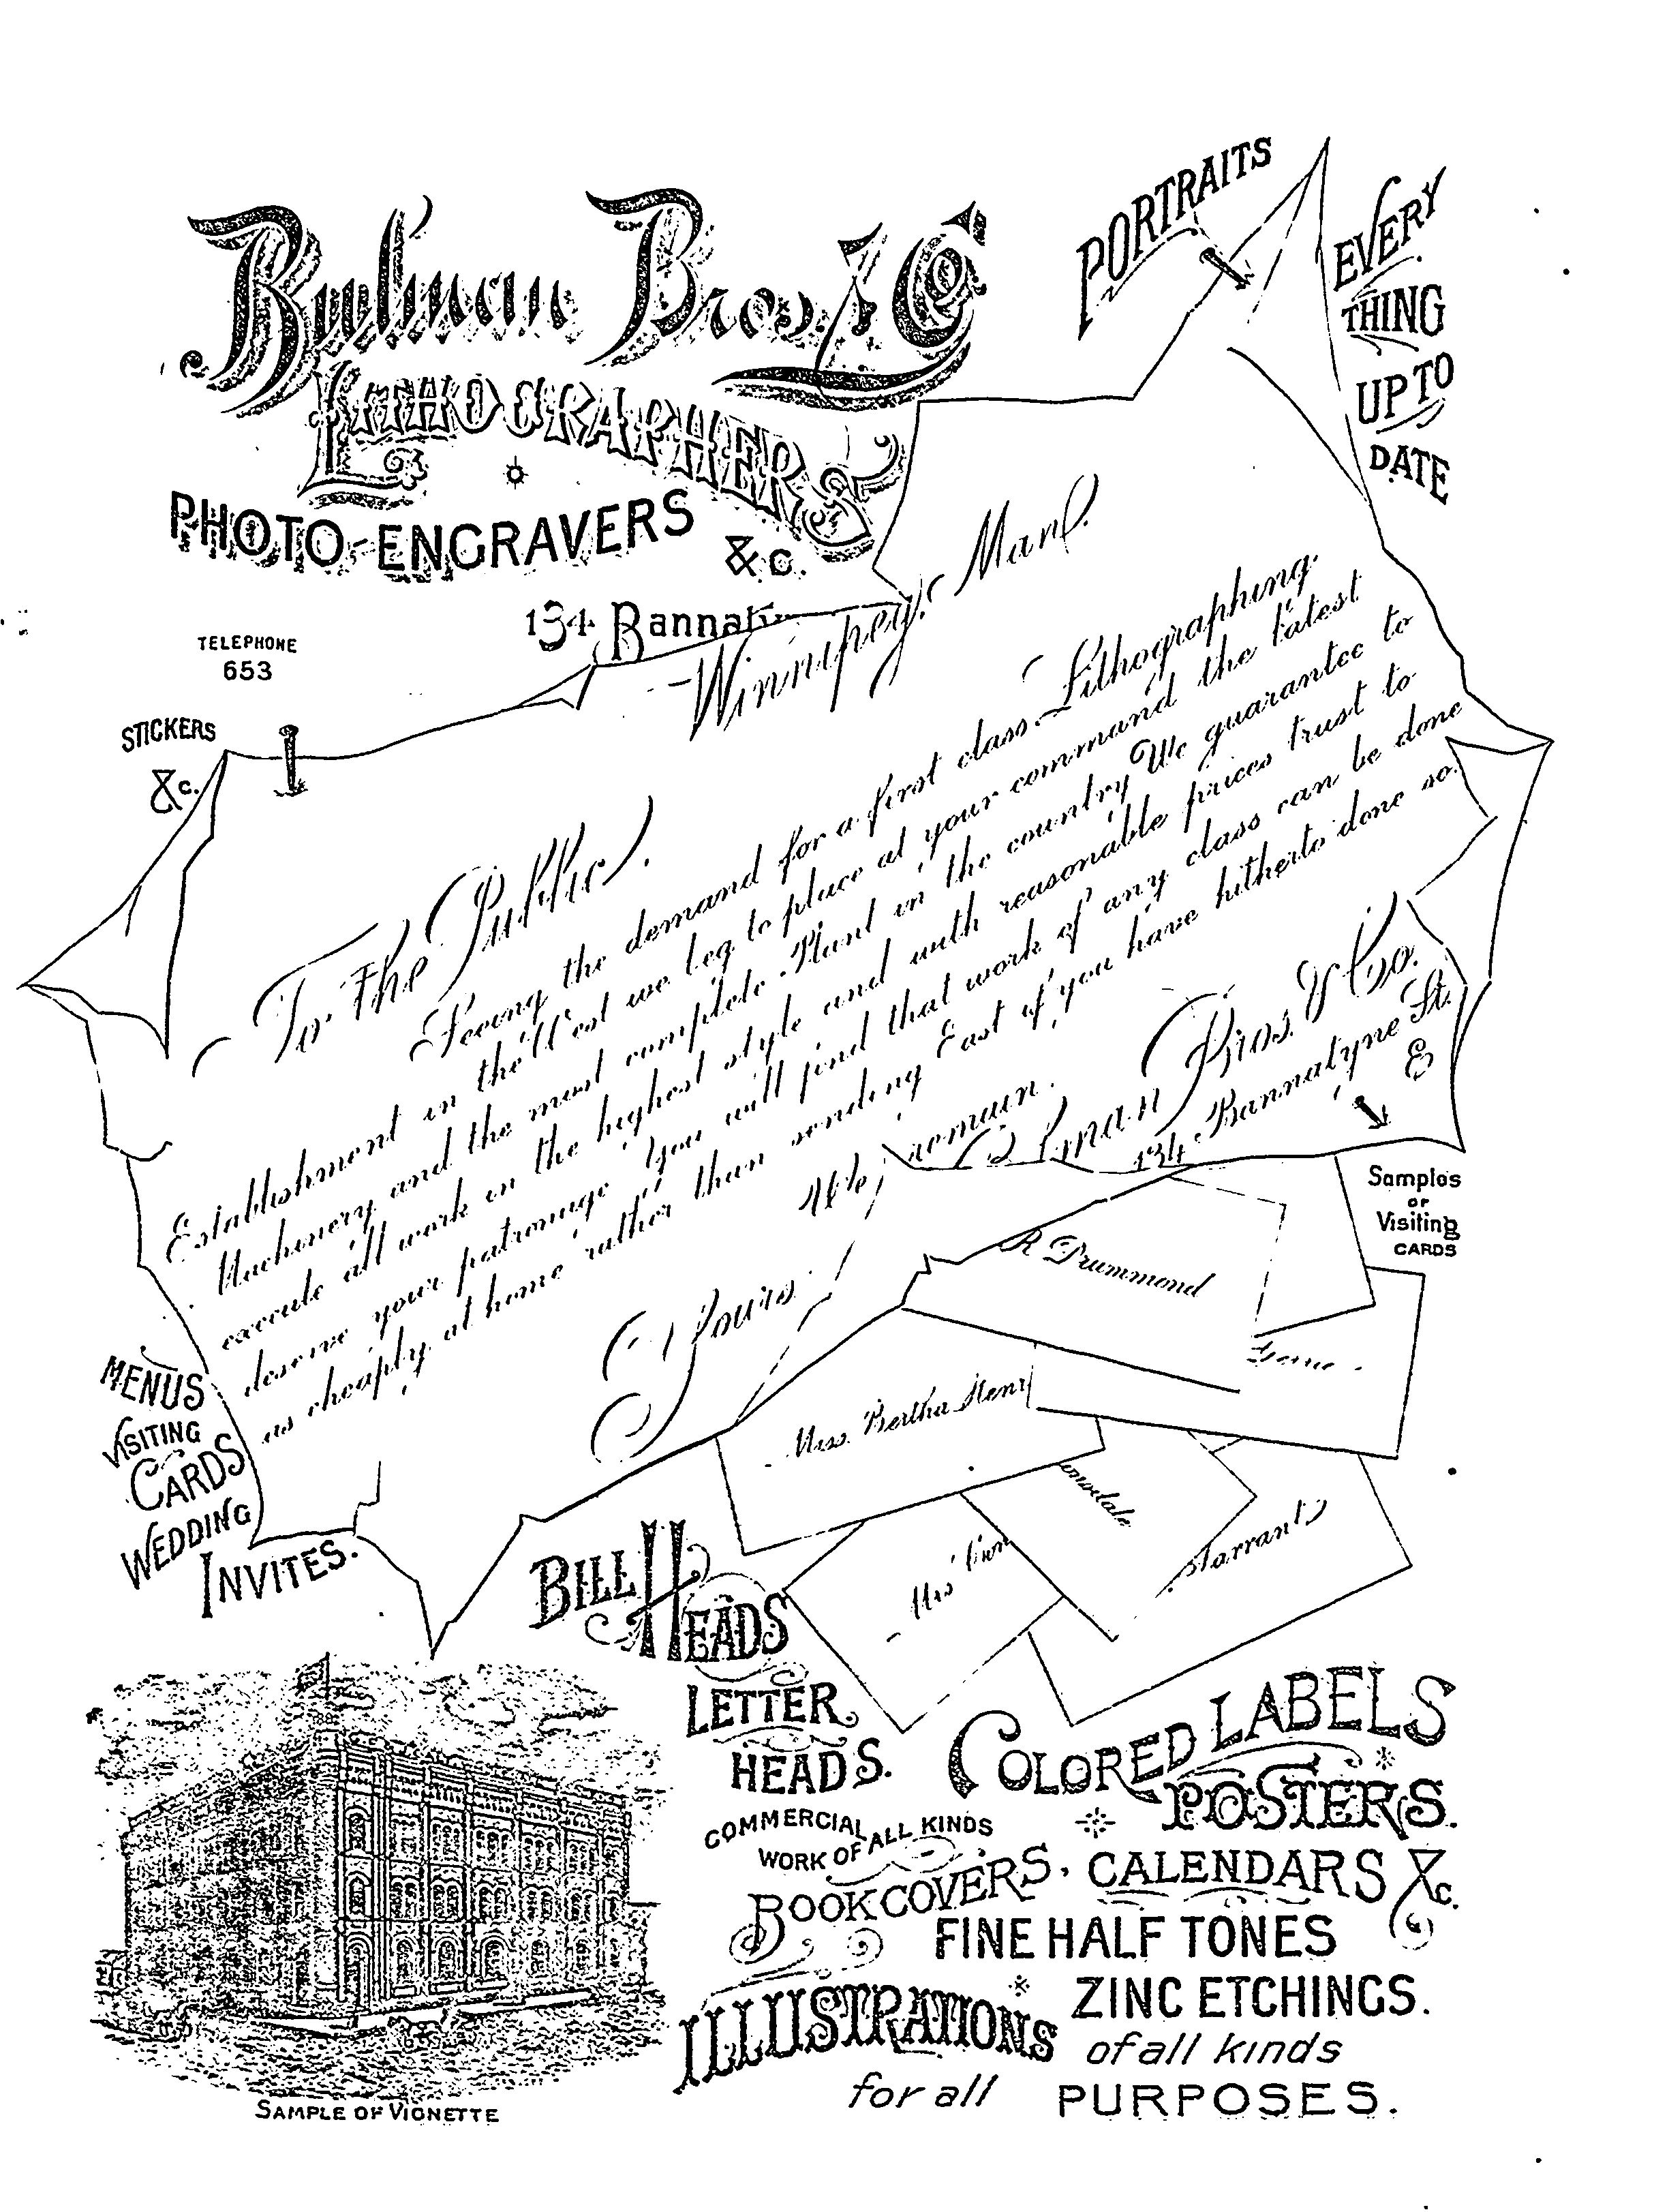 Bulman Bros. & Co.
LITHOGRAPHERS
PHOTO-ENGRAVERS &c.
134 Bannaty
TELEPHONE
653
PORTRAITS
EVERY
THING
UP TO
DATE
STICKERS
&c.
Winnipeg, Man.
To The Public.
Seeing the demand for a first class Lithographing
Establishment in the West we beg to place at your command the latest
Machinery and the most complete Plant in the country We guarantee to
execute all work in the highest style and with reasonable prices trust to
deserve your patronage You will find that work of any class can be done
as cheaply at home rather than sending East if you have hitherto done so.
We remain.
Yours
lman Bros. & Co.
134 Bannatyne St.
E
Samples
OF
Visiting
CARDS
R Drummond
Miss. Bertha Henry
Tarrant
MENUS
VISITING
CARDS
WEDDING
INVITES.
BILL HEADS
LETTER
HEADS.
COMMERCIAL
WORK OF ALL KINDS
COLORED LABELS
POSTERS.
BOOKCOVERS, CALENDARS &c.
FINE HALF TONES
ZINC ETCHINGS.
of all kinds
ILLUSTRATIONS
for all PURPOSES.
SAMPLE OF VIGNETTE